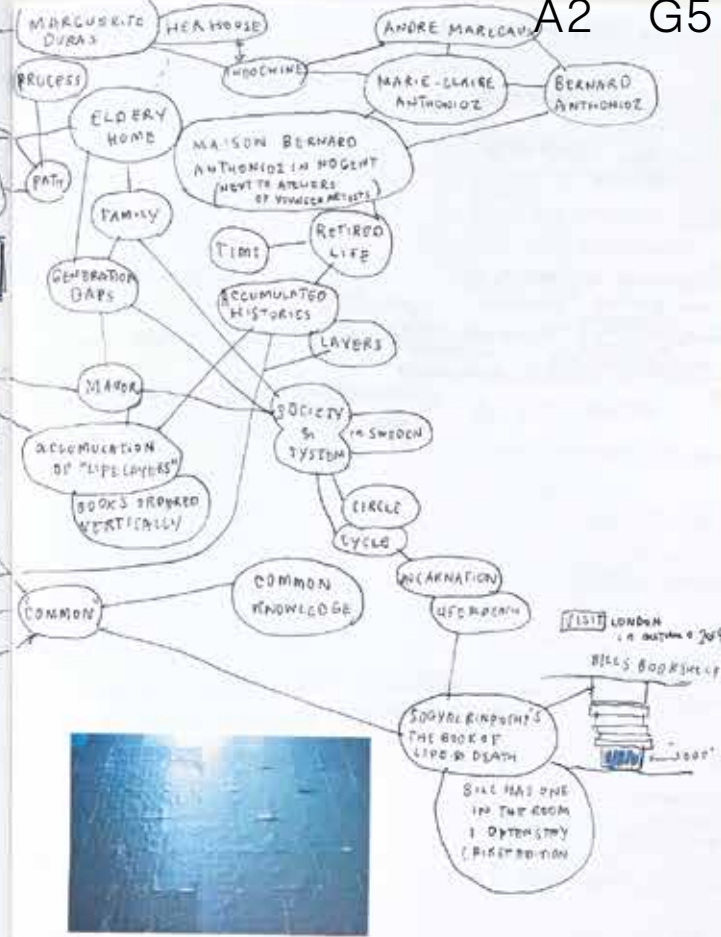 A2 G5
MARGUERITE
DURAS
HER HOUSE
ANDRE
INDOCHINE
MARIE-CLAIRE
ANTHONIOZ
BERNARD
ANTHONIOZ
PROCESS
PATH
ELDERY
HOME
MAISON BERNARD
ANTHONIOZ IN NOGENT
(NEXT TO ATELIERS
OF YOUNGER ARTISTS)
FAMILY
TIME
RETIRED
LIFE
GENERATION
GAPS
ACCUMULATED
HISTORIES
LAYERS
SOCIETY
&
SYSTEM
IN SWEDEN
ACCUMULATION
OF "LIFE LAYERS"
BOOKS ORDERED
VERTICALLY
CIRCLE
CYCLE
INCARNATION
LIFE & DEATH
"COMMON"
COMMON
KNOWLEDGE
VISIT LONDON
in autumn
BILL'S BOOKSHELF
THE BOOK OF
LIFE & DEATH
BILL HAS ONE
IN THE ROOM
I OFTEN STAY
(FIRST EDITION